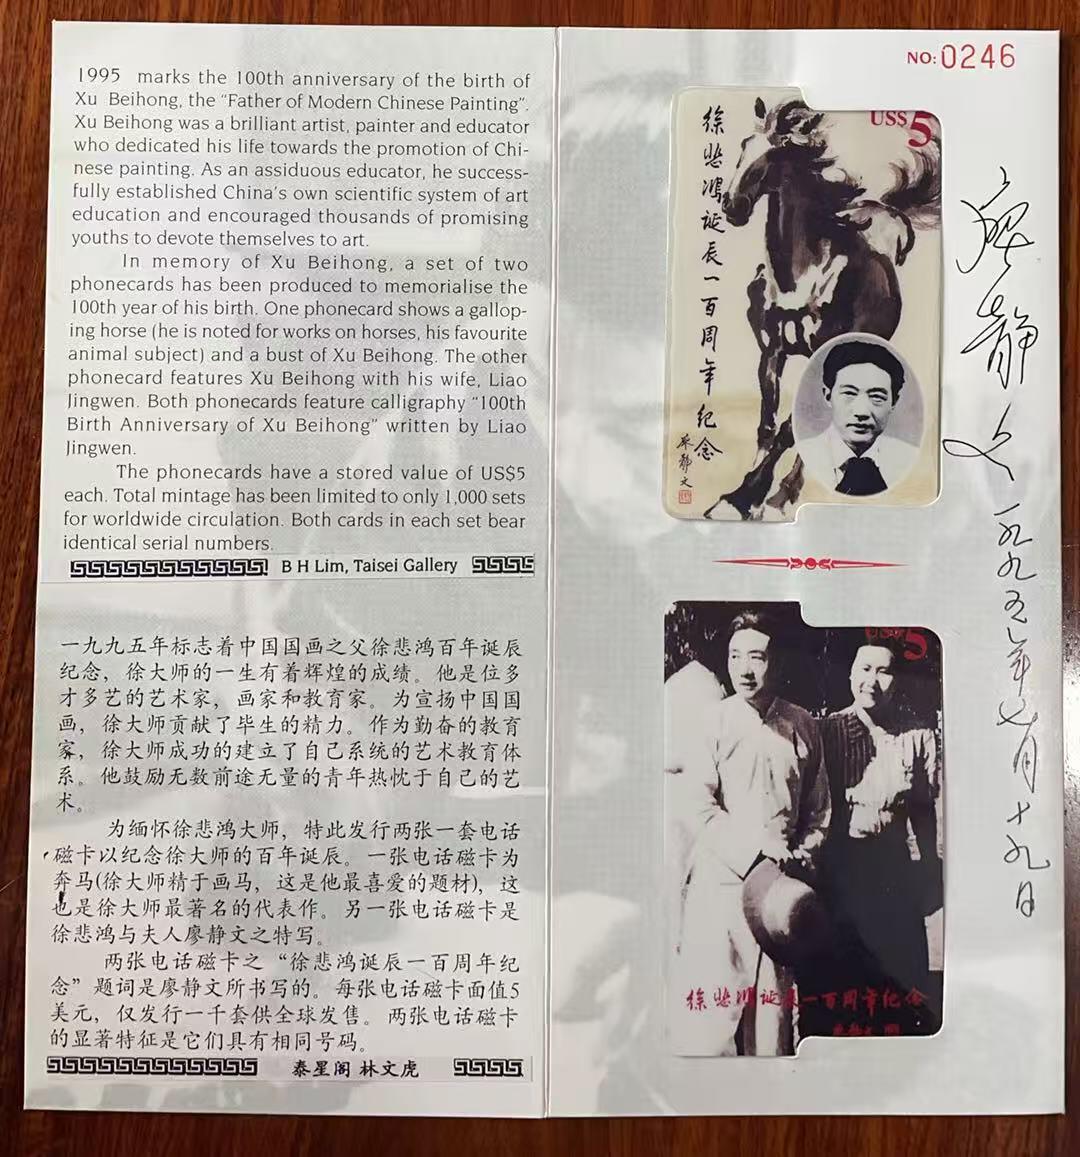 1995 marks the 100th anniversary of the birth of
Xu Beihong, the "Father of Modern Chinese Painting".
Xu Beihong was a brilliant artist, painter and educator
who dedicated his life towards the promotion of Chi-
nese painting. As an assiduous educator, he success-
fully established China's own scientific system of art
education and encouraged thousands of promising
youths to devote themselves to art.
In memory of Xu Beihong, a set of two
phonecards has been produced to memorialise the
100th year of his birth. One phonecard shows a gallop-
ing horse (he is noted for works on horses, his favourite
animal subject) and a bust of Xu Beihong. The other
phonecard features Xu Beihong with his wife, Liao
Jingwen. Both phonecards feature calligraphy "100th
Birth Anniversary of Xu Beihong" written by Liao
Jingwen.
The phonecards have a stored value of US$5
each. Total mintage has been limited to only 1,000 sets
for worldwide circulation. Both cards in each set bear
identical serial numbers.
B H Lim, Taisei Gallery
一九九五年标志着中国国画之父徐悲鸿百年诞辰
纪念，徐大师的一生有着辉煌的成绩。他是位多
才多艺的艺术家，画家和教育家。为宣扬中国国
画，徐大师贡献了毕生的精力。作为勤奋的教育
家，徐大师成功的建立了自己系统的艺术教育体
系。他鼓励无数前途无量的青年热忱于自己的艺
术。
为缅怀徐悲鸿大师，特此发行两张一套电话
磁卡以纪念徐大师的百年诞辰。一张电话磁卡为
奔马(徐大师精于画马，这是他最喜爱的题材)，这
也是徐大师最著名的代表作。另一张电话磁卡是
徐悲鸿与夫人廖静文之特写。
两张电话磁卡之“徐悲鸿诞辰一百周年纪
念”题词是廖静文所书写的。每张电话磁卡面值5
美元，仅发行一千套供全球发售。两张电话磁卡
的显著特征是它们具有相同号码。
泰星阁 林文虎
NO:0246
US$5
徐悲鸿诞辰一百周年纪念
廖静文
US$5
徐悲鸿诞辰一百周年纪念
廖静文
廖静文
一九九五年七月十九日